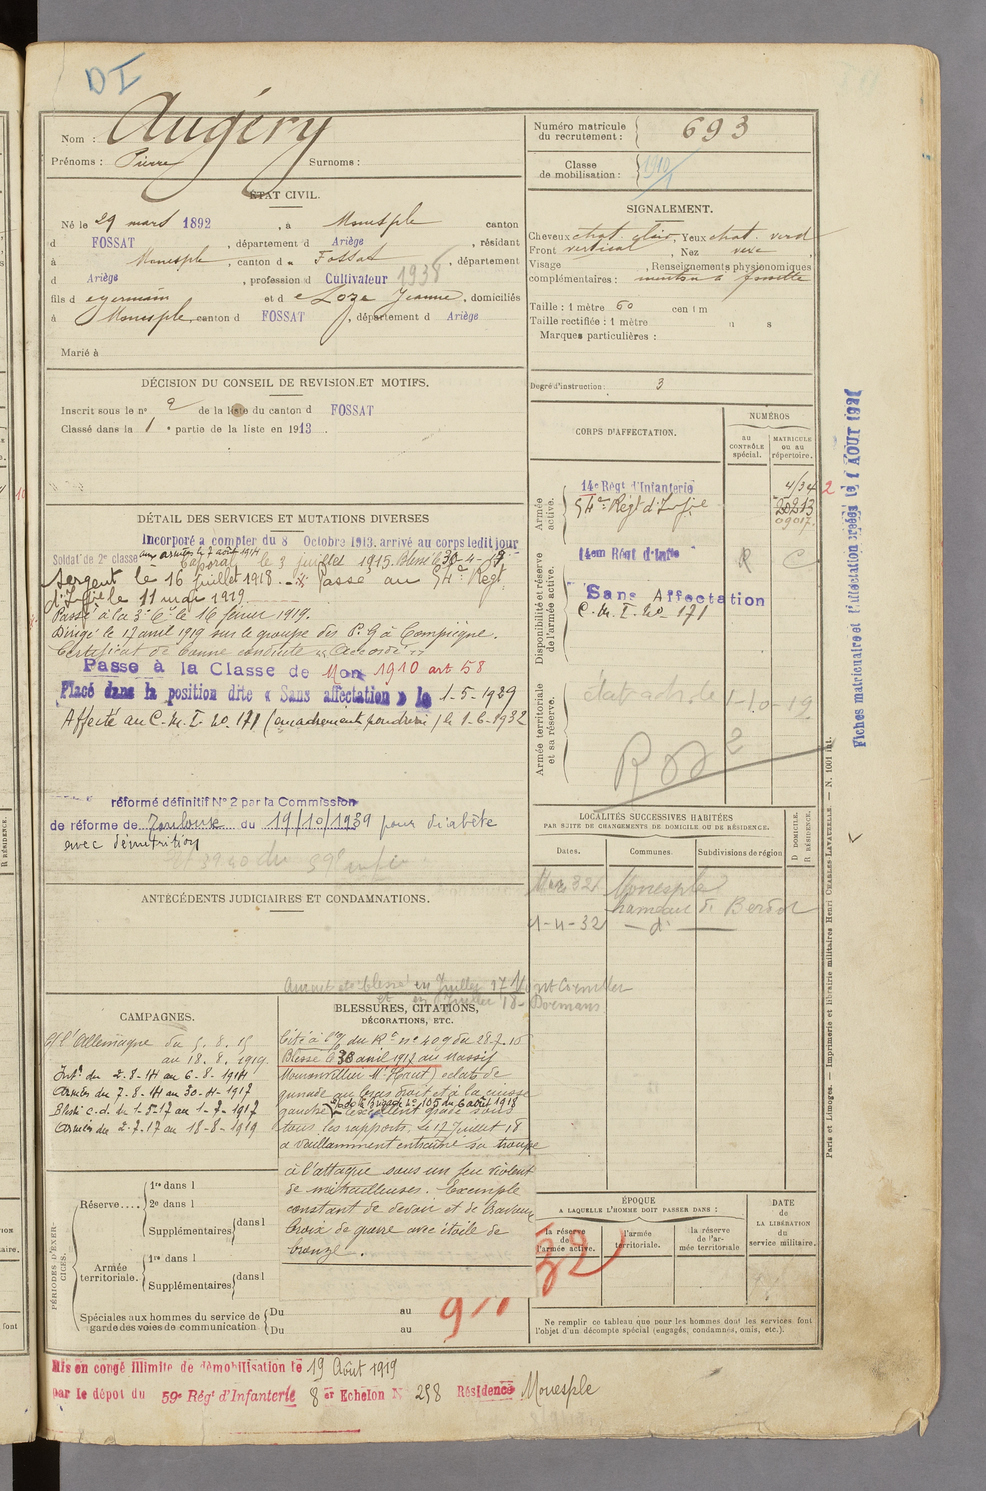 DI
Nom : Augéry
Prénoms : Pierre Surnoms :
ÉTAT CIVIL.
Né le 29 mars 1892, à Monesple canton
d FOSSAT, département d Ariège, résidant
à Monesple, canton d u Fossat, département
d Ariège, profession d Cultivateur 1938
fils d e germain et d e Loze Jeanne, domiciliés
à Monesple, canton d FOSSAT, département d Ariège
Marié à
DÉCISION DU CONSEIL DE REVISION ET MOTIFS.
Inscrit sous le nº 2 de la liste du canton d FOSSAT
Classé dans la 1 e partie de la liste en 1913
DÉTAIL DES SERVICES ET MUTATIONS DIVERSES
Incorporé à compter du 8 Octobre 1913, arrivé au corps ledit jour
Soldat de 2e classe aux armées le 7 août 1914
Caporal le 3 juillet 1915. Blessé le 30-4-17
Sergent le 16 juillet 1918. Passé au 54e Régt
d'Infie le 11 mai 1919
Passé à la 3e Cie le 16 février 1919.
Dirigé le 17 avril 1919 sur le groupe des P.G à Compiègne.
Certificat de bonne conduite "Accordé"
Passé à la Classe de Mon 1910 art 58
Placé dans la position dite « Sans affectation » le 1-5-1929
Affecté au C.M.I. 20.171 (encadrement poudrerie) le 1-6-1932
réformé définitif Nº 2 par la Commission
de réforme de Toulouse du 19/10/1939 pour diabète
avec dénutrition
ANTÉCÉDENTS JUDICIAIRES ET CONDAMNATIONS.
Aurait été blessé en Juillet 17 Mont Cornillet
et en Juillet 18 - Dormans
CAMPAGNES.
Ct l'Allemagne du 5. 8. 15
au 18. 8. 1919.
Intr du 2-8-14 au 6-8-1914
Armées du 7-8-14 au 30-4-1917
Blessé c.d. du 1-5-17 au 1-7-1917
Armées du 2-7-17 au 18-8-1919
BLESSURES, CITATIONS,
DÉCORATIONS, ETC.
Cité à l'O. du Rt nº 409 du 28-7-15
Blessé le 30 avril 1917 au Massif
Moronvilliers (Mt Haut) éclats de
grenade au bras droit et à la cuisse
gauche
O. de la brigade nº 105 du 6 août 1918
"excellent gradé sous
tous les rapports. Le 17 Juillet 18
a vaillamment entraîné sa troupe
à l'attaque sous un feu violent
de mitrailleuses. Exemple
constant de devoir et de bravoure
Croix de guerre avec étoile de
bronze.
PÉRIODES D'EXERCICES.
Réserve....
1re dans l
2e dans l
Supplémentaires dans l
Armée territoriale.
1re dans l
Supplémentaires dans l
Spéciales aux hommes du service de
garde des voies de communication
Du au
Du au
Mis en congé illimité de démobilisation le 19 Août 1919
par le dépôt du 59e Régt d'Infanterie 8 er Echelon N 258 Résidence Monesple
Numéro matricule
du recrutement : 693
Classe
de mobilisation : 1910
SIGNALEMENT.
Cheveux chat. clair, Yeux chat. verd
Front vertical, Nez vexe
Visage , Renseignements physionomiques
complémentaires : menton à fossette
Taille : 1 mètre 60 centim
Taille rectifiée : 1 mètre
Marques particulières :
Degré d'instruction : 3
CORPS D'AFFECTATION.
NUMÉROS
AU CONTRÔLE spécial.
MATRICULE OU AU répertoire.
Armée active.
14e Régt d'Infanterie 4/34
54e Régt d'Infie
09017
Disponibilité et réserve de l'armée active.
14em Régt d'Infie R C
Sans Affectation
C.M.I. 20-171
Armée territoriale et sa réserve.
1-10-19
Rd 2
LOCALITÉS SUCCESSIVES HABITÉES
PAR SUITE DE CHANGEMENTS DE DOMICILE OU DE RÉSIDENCE.
Dates. Communes. Subdivisions de région
D DOMICILE.
R RÉSIDENCE.
Mar 32 Monesple
hameau de Berdot
1-4-32 - dº -
ÉPOQUE
A LAQUELLE L'HOMME DOIT PASSER DANS :
la réserve de l'armée active.
l'armée territoriale.
la réserve de l'armée territoriale
DATE de LA LIBÉRATION du service militaire.
32
Ne remplir ce tableau que pour les hommes dont les services font
l'objet d'un décompte spécial (engagés, condamnés, omis, etc.).
Fiches matriculaire et d'affectation créées le 1 AOUT 1921
Paris et Limoges. — Imprimerie et librairie militaires Henri CHARLES-LAVAUZELLE. — N. 1001 int.